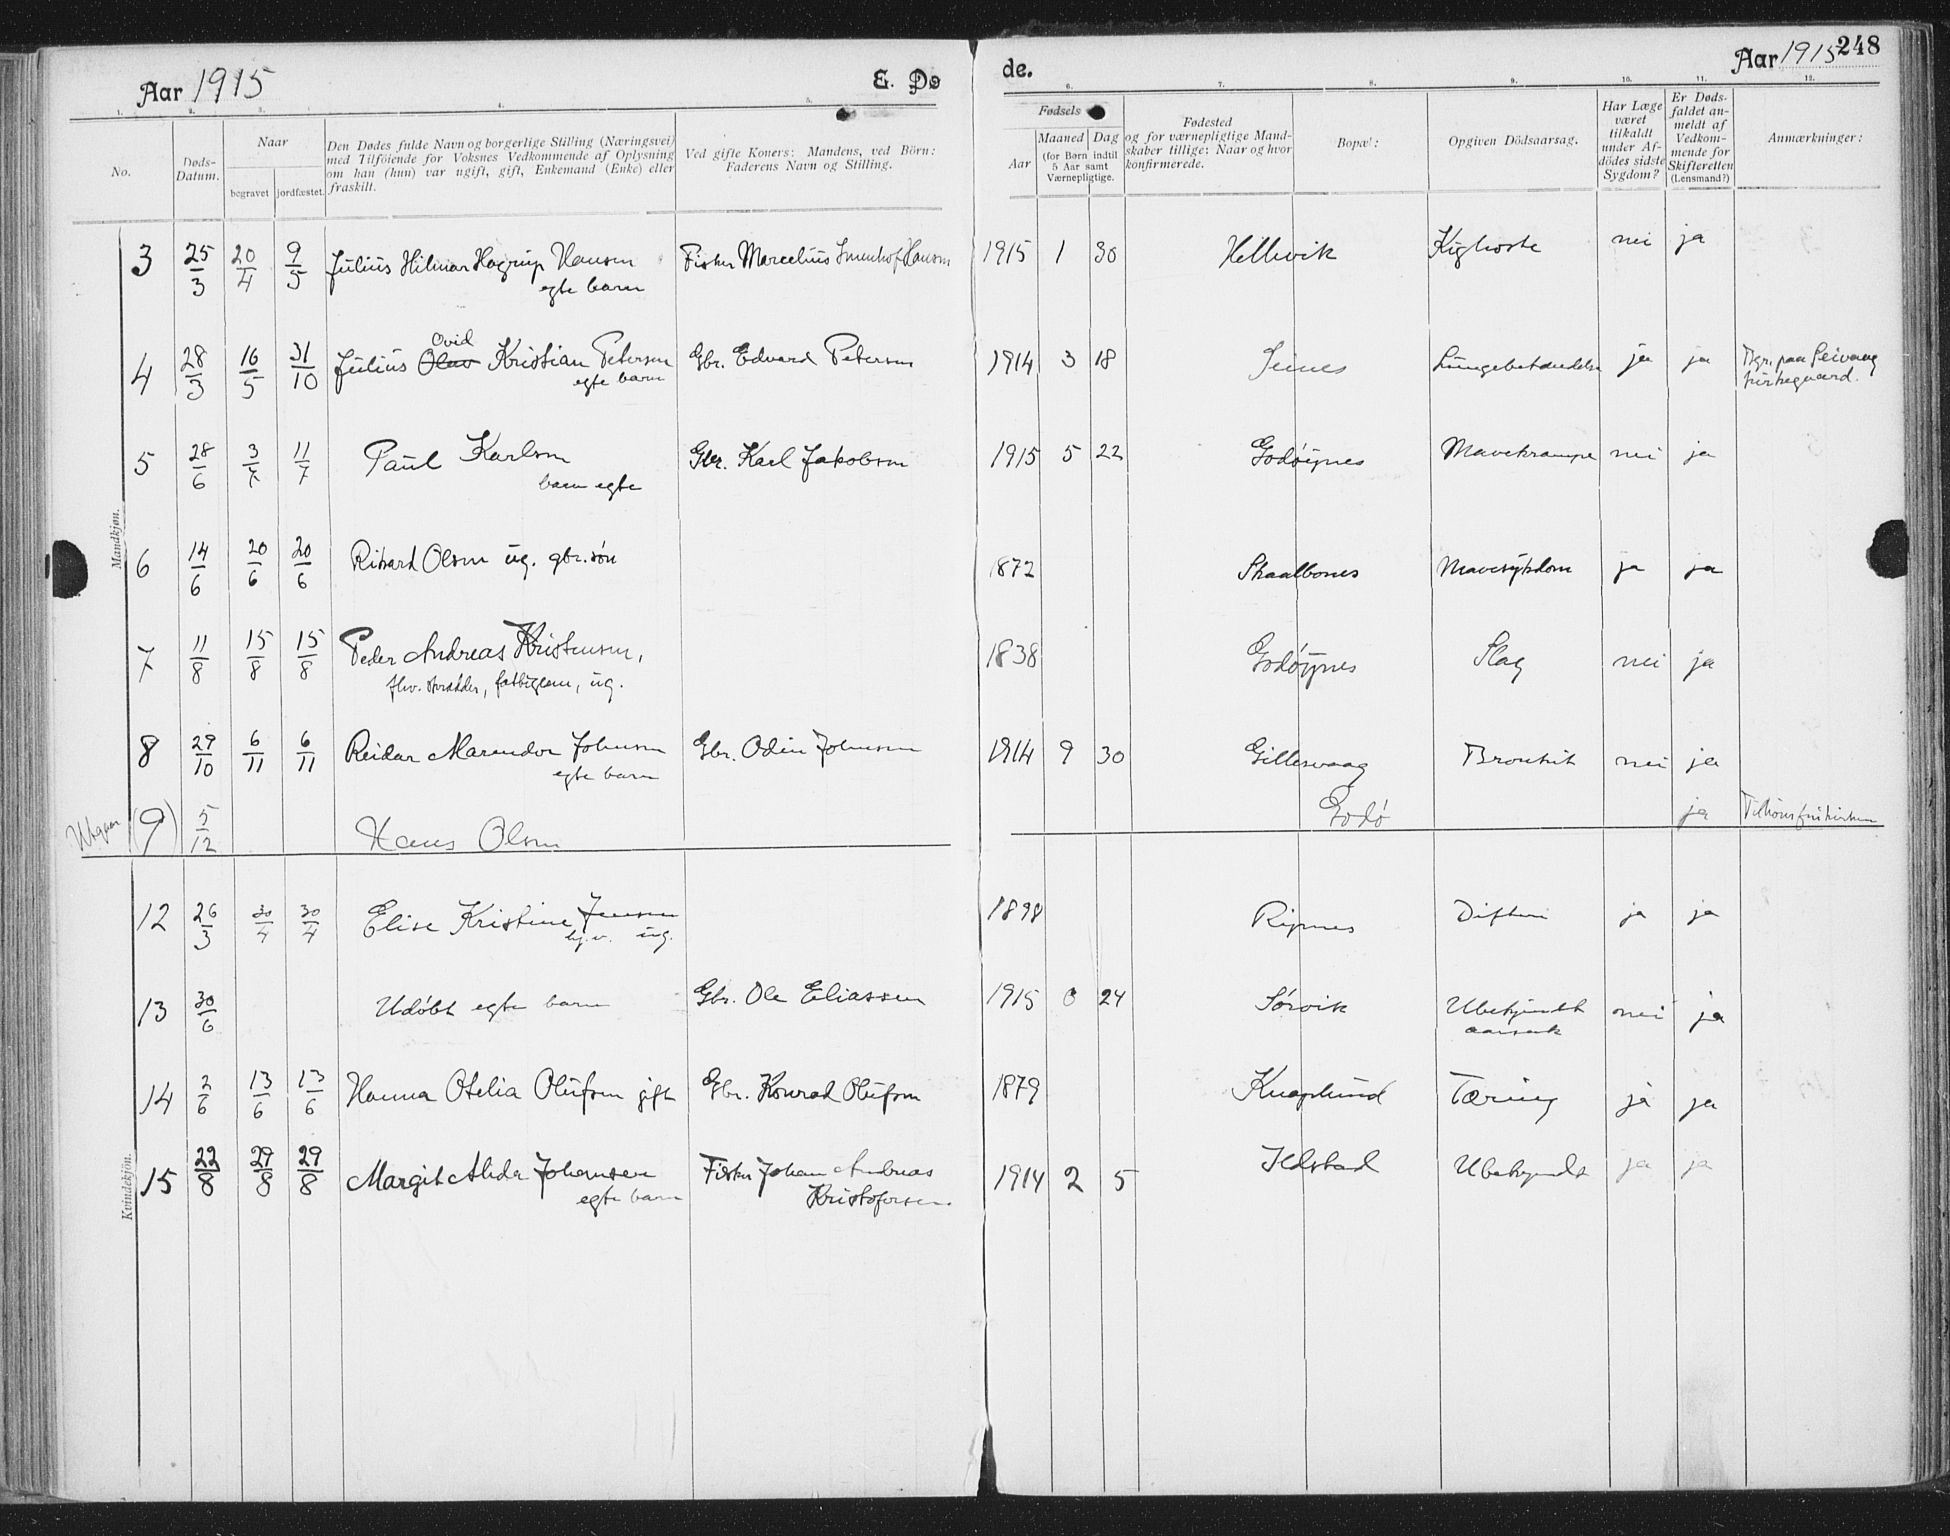 Aar 1915
E. Dø
de.
Aar 1915 248
1. 2. 3. 4. 5. 6. 7. 8. 9. 10. 11. 12.
No.
Døds-
Datum.
Naar
begravet jordfæstet.
Den Dødes fulde Navn og borgerlige Stilling (Næringsvei)
med Tilföiende for Voksnes Vedkommende af Oplysning
om han (hun) var ugift, gift, Enkemand (Enke) eller
fraskilt.
Ved gifte Koners: Mandens, ved Börn:
Faderens Navn og Stilling.
Fødsels
Aar
Maaned Dag
(for Børn indtil
5 Aar samt
Værnepligtige.
Fødested
og for værnepligtige Mand-
skaber tillige: Naar og hvor
konfirmerede.
Bopæl:
Opgiven Dödsaarsag.
Har Læge
været
tilkaldt
under Af-
dödes sidste
Sygdom?
Er Døds-
faldet an-
meldt af
Vedkom-
mende for
Skifteretten
(Lensmand?)
Anmærkninger:
Mandkjøn.
3 25/3 20/4 9/5 Julius Hilmar Hagrup Hansen Fisker Marcelius Hansen 1915 1 30 Hellevik Kighoste nei ja
egte barn
Ovid
4 28/3 16/5 31/10 Julius Olav Kristian Petersen Gbr. Edvard Petersen 1914 3 18 Seines Lungebetændelse ja ja Bgr. paa Seivaag
egte barn kirkegaard.
5 28/6 3/7 11/7 Paul Karlsen Gbr. Karl Jakobsen 1915 5 22 Godøynes Mavekrampe nei ja
barn egte
6 14/6 20/6 20/6 Rikard Olsen ug. gbr. søn 1872 Skaalbones Mavesykdom ja ja
7 11/8 15/8 15/8 Peder Andreas Kristensen, 1838 Godøynes Slag nei ja
fhv. skrædder, fattiglem, ug.
8 29/10 6/11 6/11 Reidar Marendor Johnsen Gbr. Odin Johnsen 1914 9 30 Gillesvaag Bronkit nei ja
egte barn
Utgaar (9) 5/12 Hans Olsen Godø ja
Kvindekjön.
12 26/3 30/4 30/4 Elise Kristine Jensen 1898 Ripnes Difteri ja ja
ug.
13 30/6 Udøbt egte barn Gbr. Ole Eliassen 1915 6 24 Sørvik Ubekjendt nei ja
aarsak
14 2/6 13/6 13/6 Hanna Otelia Olufsen gift Gbr. Konrad Olufsen 1879 Knaplund Tæring ja ja
15 22/8 29/8 29/8 Margit Alida Johansen Fisker Johan Andreas 1914 2 5 Ildstad Ubekjendt ja ja
egte barn Kristofersen